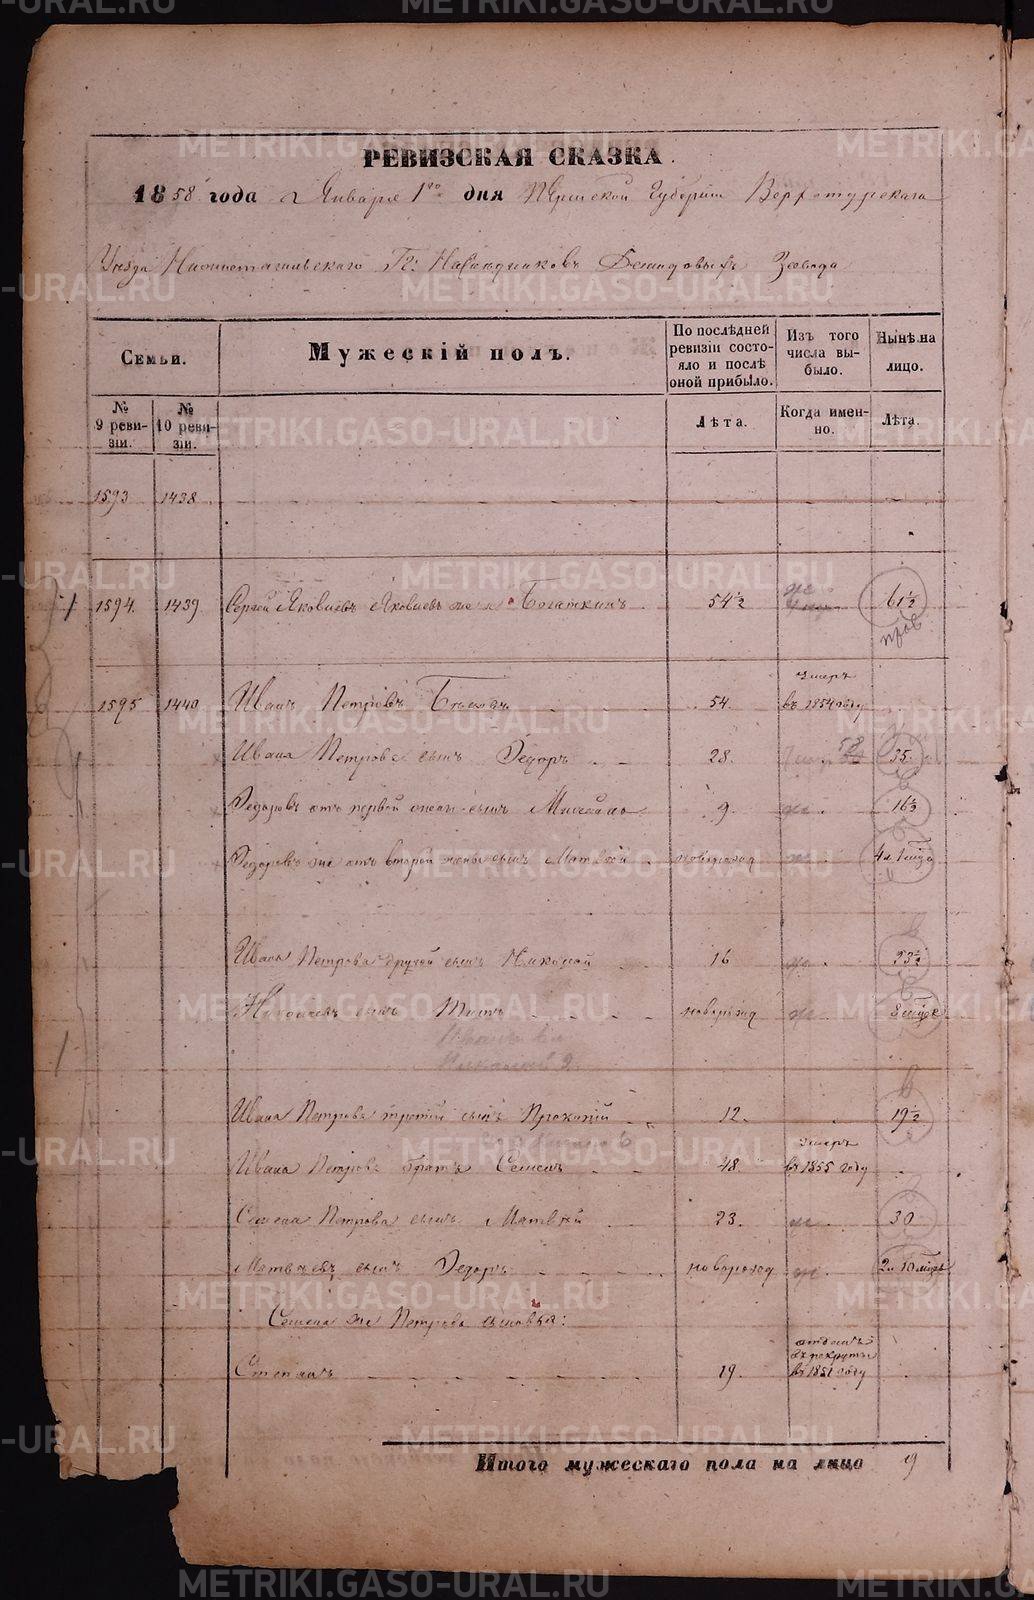 РЕВИЗСКАЯ СКАЗКА.
1858 года Января 1го дня Пермской Губернии Верхотурскаго
Уезда Нижнетагильскаго Гг: Наследниковъ Демидовыхъ Завода
Семьи.
Мужескій полъ.
По послѣдней ревизіи состояло и послѣ оной прибыло.
Изъ того числа выбыло.
Нынѣ на лицо.
№ 9 ревизіи.
№ 10 ревизіи.
Лѣта.
Когда именно.
Лѣта.
1593 1438
1594. 1439 Сергей Яковлевъ Богаткинъ 54½ 61½
прав
1595 1440 Иванъ Петровъ 54. умеръ въ 1854 году
Ивана Петрова сынъ Федоръ 28. 35.
Федоровъ отъ первой жены сынъ Михайло 9 16½
Федоровъ же отъ второй жены сынъ Матвей новорожд 4
Ивана Петрова другой сынъ Николай 16 23½
Николаевъ сынъ новорожд 8
Ивана Петрова третій сынъ Прокопій 12. 19½
Ивана Петрова братъ Семенъ 48. умеръ въ 1855 году
Семена Петрова сынъ Матвей 23. 30
Матвеевъ сынъ Федоръ новорожд 2 10
Семена же Петрова сыновья:
Степанъ 19. отданъ въ рекруты въ 1851 году
Итого мужескаго пола на лицо 9
METRIKI.GASO-URAL.RU